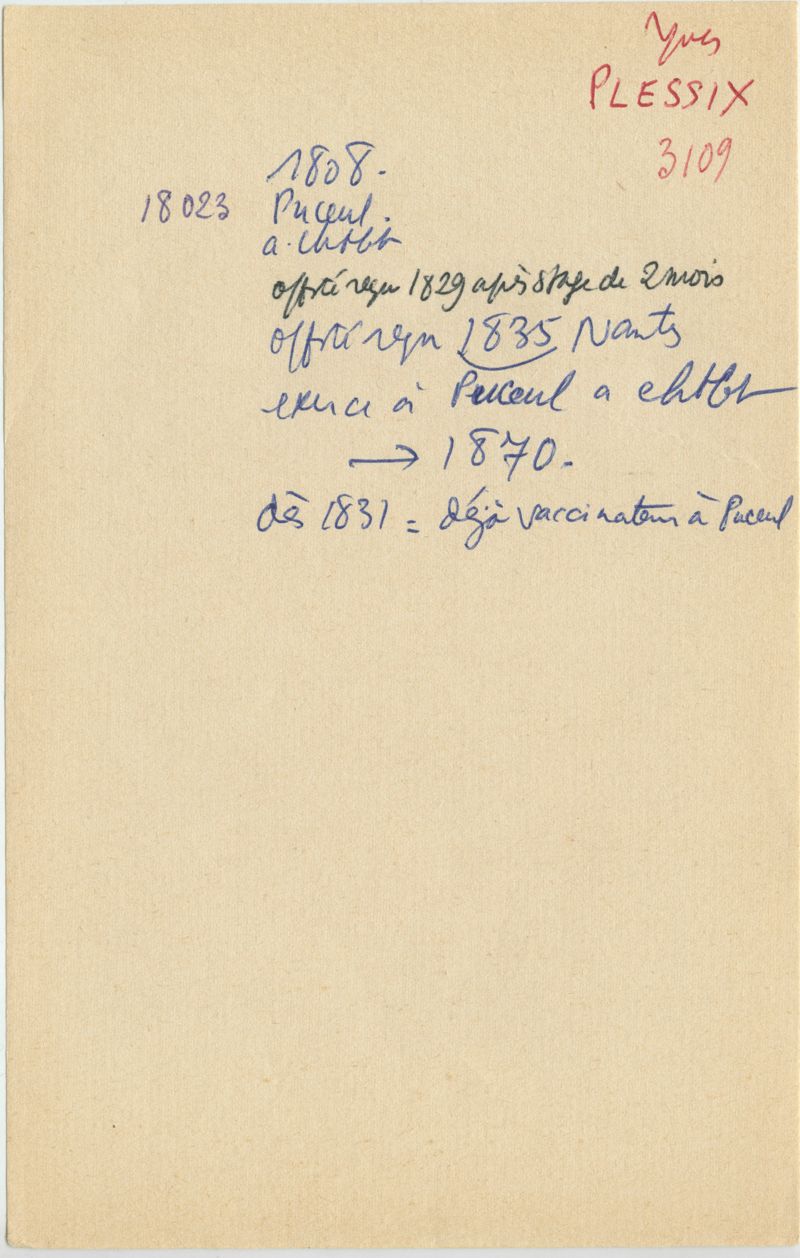 Yves
PLESSIX
3109
1808.
18023 Puceul.
a. chtbt
offsté reçu 1829 après stage de 2 mois
offsté reçu 1835 Nantes
exerce à Puceul a chtbt
→ 1870.
dès 1831 = déjà vaccinateur à Puceul